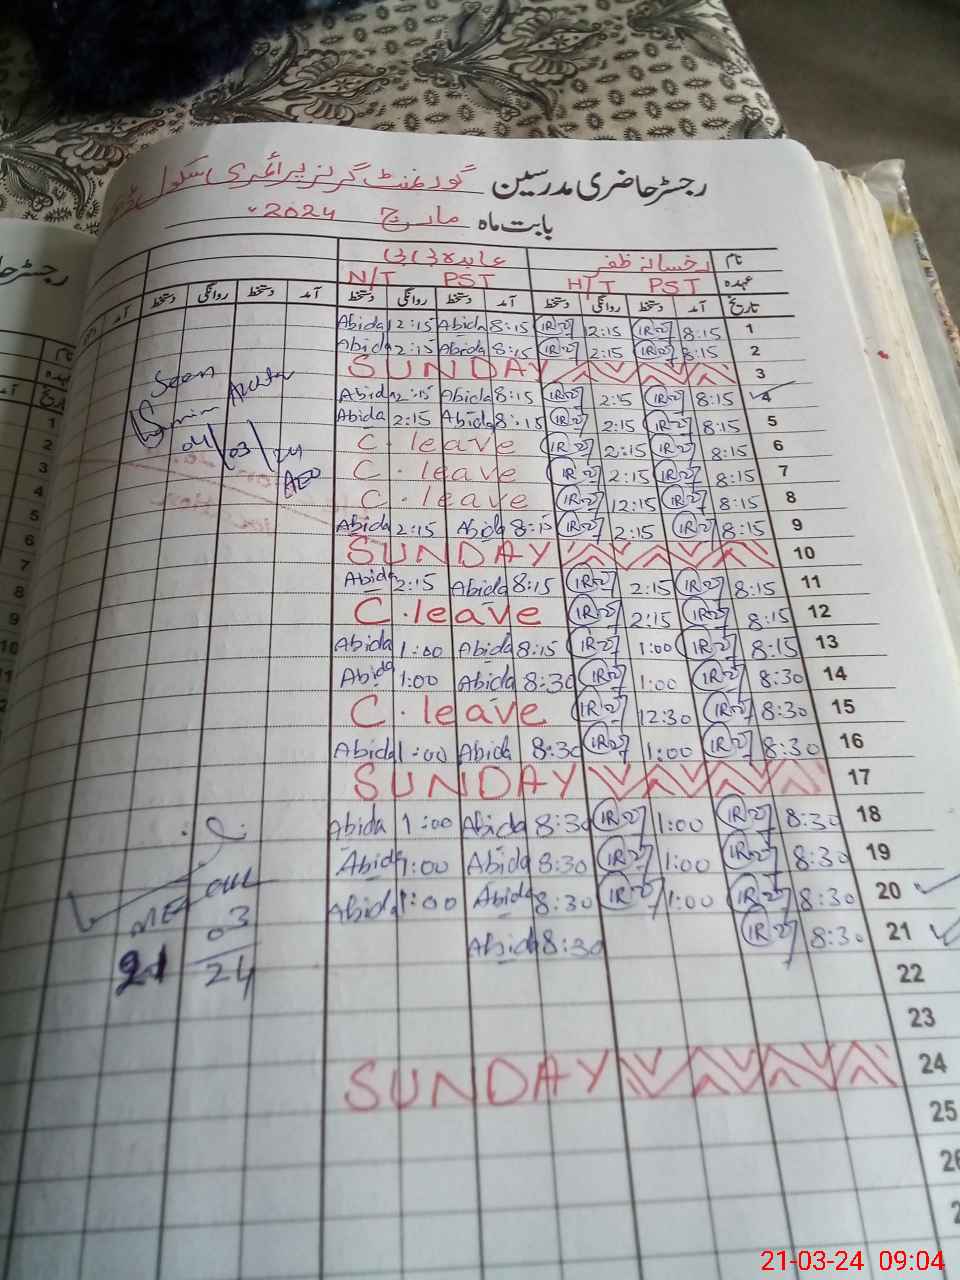 رجسٹر حاضری مدرسین گورنمنٹ گرلز پرائمری سکول
بابت ماہ مارچ 2024
نام رخسانہ ظفر عابدہ
عہدہ PST H/T PST N/T
تاریخ آمد دستخط روانگی دستخط آمد دستخط روانگی دستخط آمد دستخط روانگی دستخط
Abida 2:15 Abida 8:15 12:15 8:15 1
Abida 2:15 Abida 8:15 2:15 8:15 2
SUNDAY 3
Abida 2:15 Abida 8:15 2:15 8:15 4
Abida 2:15 Abida 8:15 2:15 8:15 5
C. leave 2:15 8:15 6
C. leave 2:15 8:15 7
C. leave 12:15 8:15 8
Abida 2:15 Abida 8:15 2:15 8:15 9
SUNDAY 10
Abida 2:15 Abida 8:15 2:15 8:15 11
C. leave 2:15 8:15 12
Abida 1:00 Abida 8:15 1:00 8:15 13
Abida 1:00 Abida 8:30 1:00 8:30 14
C. leave 12:30 8:30 15
Abida 1:00 Abida 8:30 1:00 8:30 16
SUNDAY 17
Abida 1:00 Abida 8:30 1:00 8:30 18
Abida 1:00 Abida 8:30 1:00 8:30 19
Abida 1:00 Abida 8:30 1:00 8:30 20
Abida 8:30 8:30 21
22
23
SUNDAY 24
25
26
Seen
04/03/24
AEO
03
21 24
21-03-24 09:04